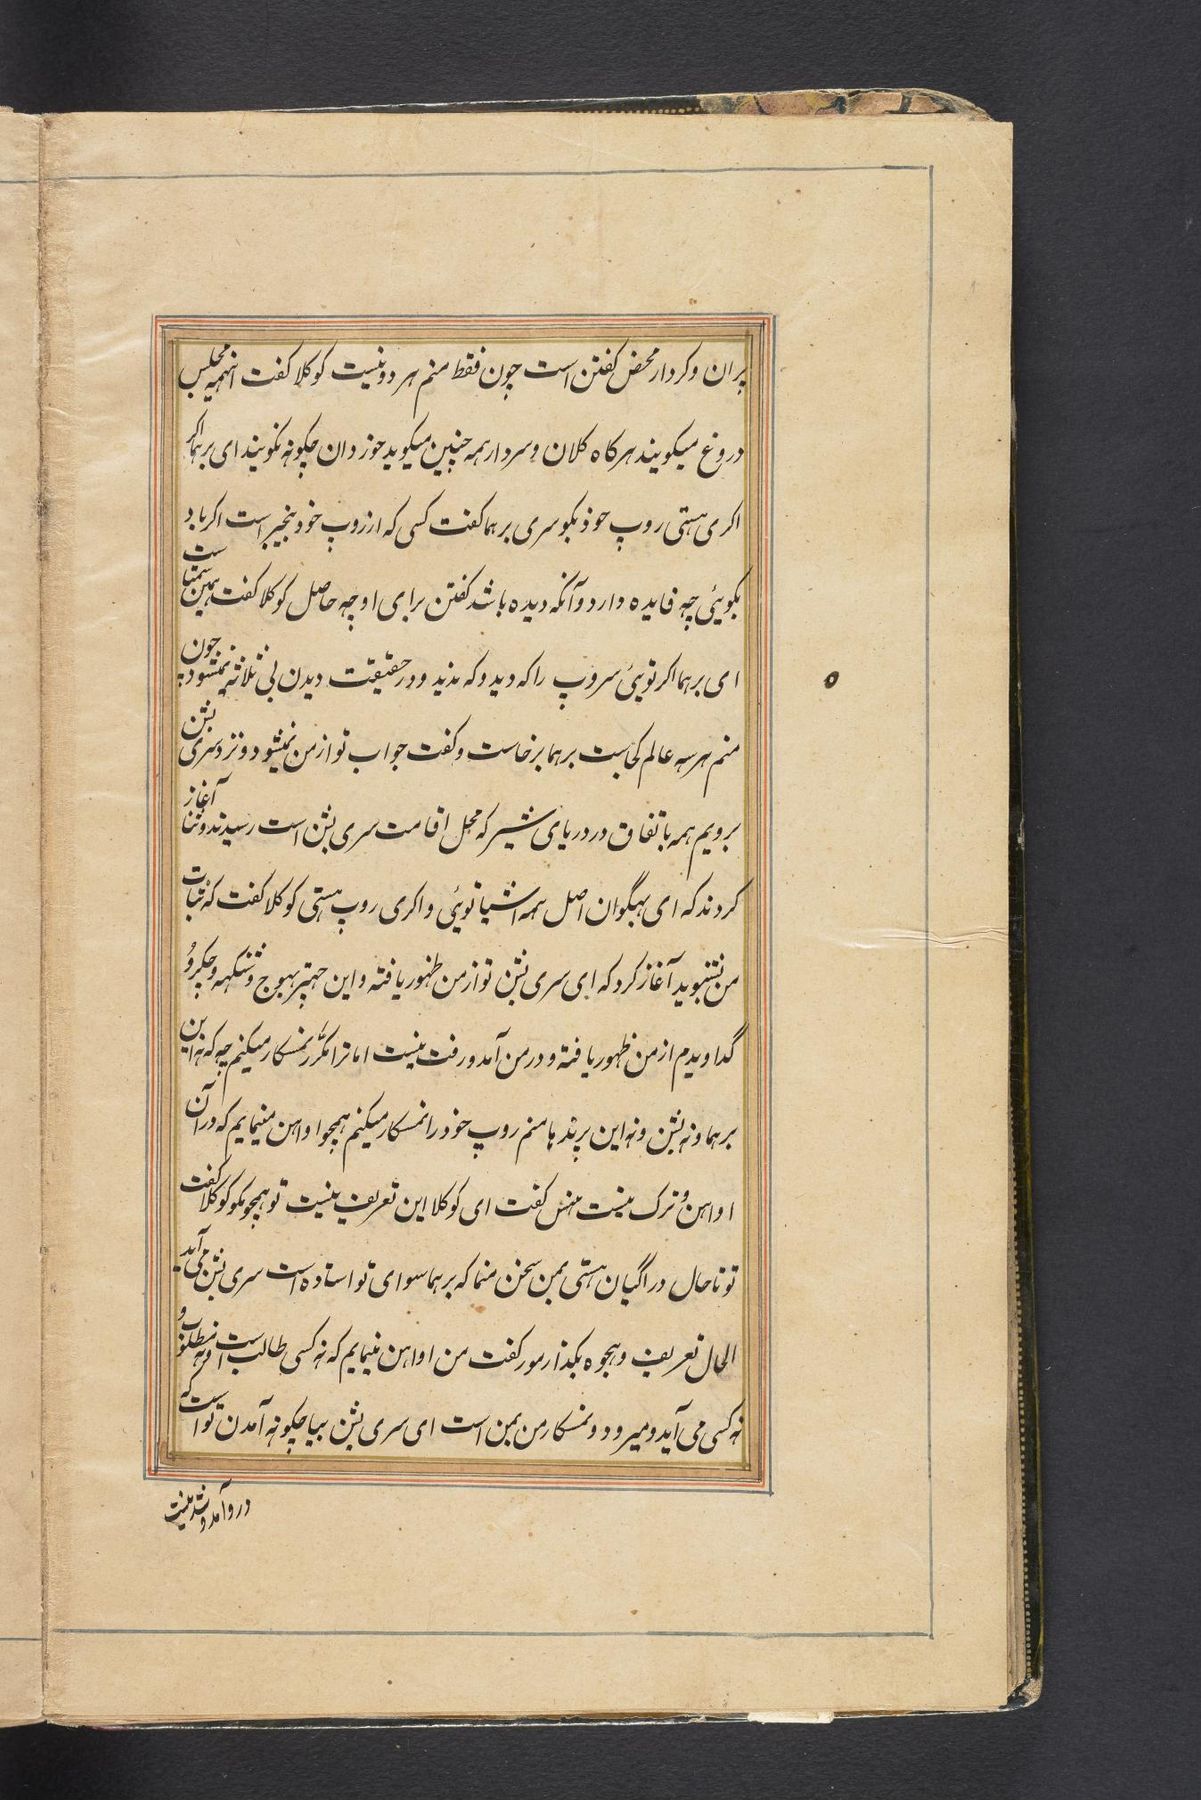 پران و کردار محض گفتن است چون فقط منم هر دو نیست کوکلا گفت اینهمه مجلس
دروغ میگویند هرگاه کلان و سردار همه چنین میگوید خوردان چگونه نگویند ای برهما اگر
اکری هستی روپ خود بگو سری برهما گفت کسی که از روپ خود بیخبر است اگر باد
بگوئی چه فایده دارد و آنکه دیده باشد گفتن برای او چه حاصل کوکلا گفت همین
ای برهما اگر توئی سروپ را که دید و که ندید و در حقیقت دیدن بی ثلاثه نمیشود چون
منم هر سه عالم کجاست برهما برخاست و گفت جواب تو از من نمیشود و نزد سری بشن
برویم همه باتفاق در دریای شیر که محل اقامت سری بشن است رسیدند و ثنا آغاز
کردند که ای بهگوان اصل همه اشیا توئی و اکری روپ هستی کوکلا گفت که ثبات
من بشنوید آغاز کرد که ای سری بشن تو از من ظهور یافته و این چتربهوج و شنکهه و چکر و
گدا و پدم از من ظهور یافته و در من آمد و رفت نیست اما ترا مکرر نمسکار میکنم چه که نه این
برهما و نه بشن و نه این پرند ها منم روپ خود را نمسکار میکنم همچو اواهن مینمایم که در آن
اواهن و ترک نیست مهنس گفت ای کوکلا این تعریف نیست تو همچو مگو کوکلا گفت
تو تا حال در اگیان هستی بمن سخن منما که برهما سوای تو استاده است سری بشن می آید
الحال تعریف و هجوه بگذار مور گفت من اواهن مینمایم که نه کسی طالب است و نه مطلوب و
نه کسی می آید و میرود و نمسکار من بمن است ای سری بشن بیا چگونه آمدن تو است که
درو آمد و شد نیست